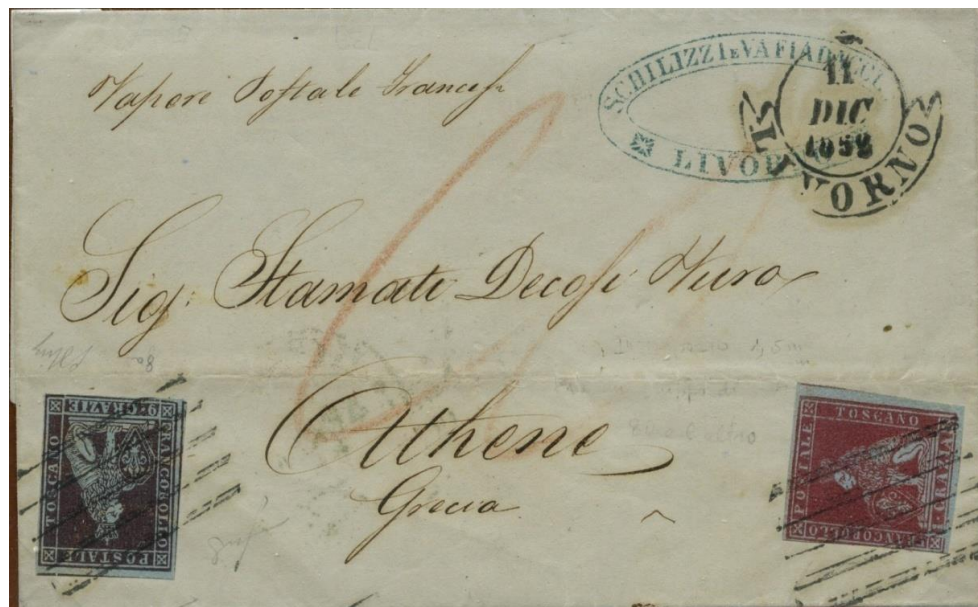 Vapore Postale Francese
SCHILIZZI E VAFIADACCHI
LIVORNO
11
DIC
1852
LIVORNO
Sig. Stamati Decosi Vuro
Athene
Grecia
FRANCOBOLLO
POSTALE
TOSCANO
9 GRAZIE
FRANCOBOLLO
POSTALE
TOSCANO
1 CRAZIA